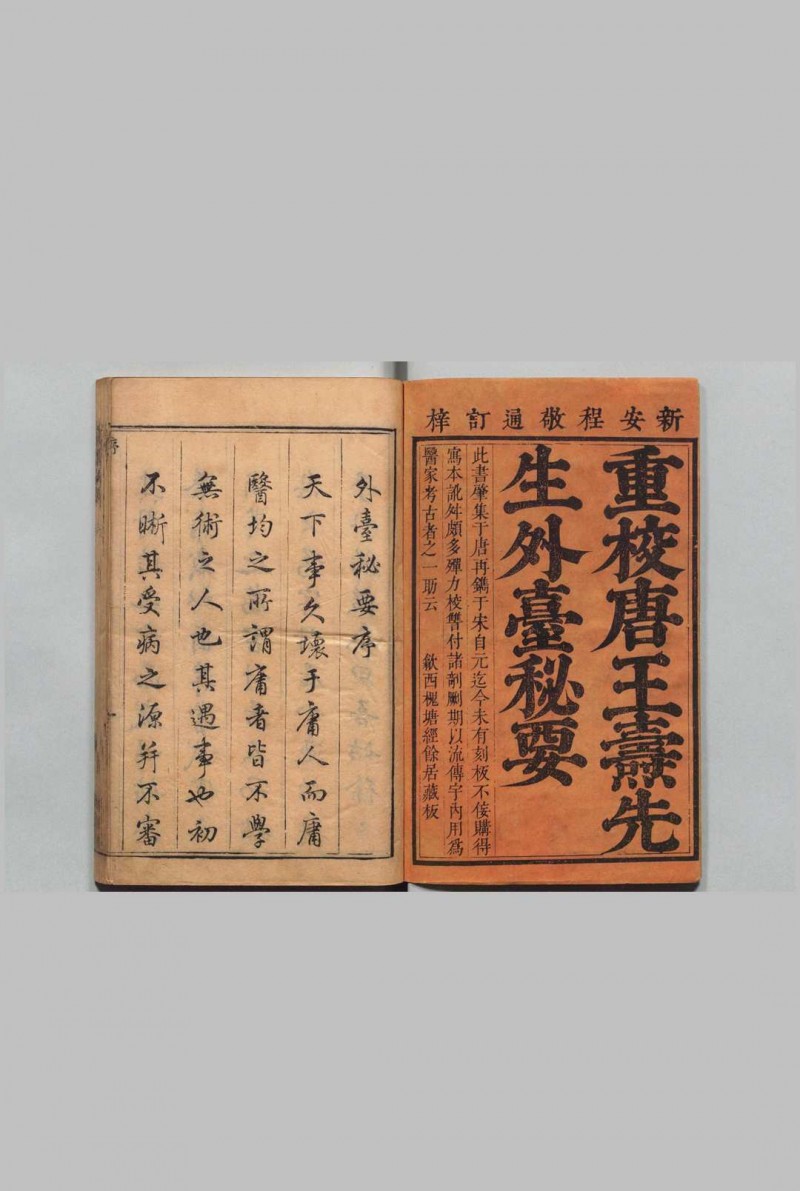 新安程敬通訂梓
重校唐王燾先
生外臺秘要
此書肇集于唐再鐫于宋自元迄今未有刻板不佞購得
寫本訛舛頗多殫力校讐付諸剞劂期以流傳宇內用爲
醫家考古者之一助云 歙西槐塘經餘居藏板
外臺秘要序
天下事久壞于庸人而庸
醫均之所謂庸者皆不學
無術之人也其遇事也初
不晰其受病之源并不審
序